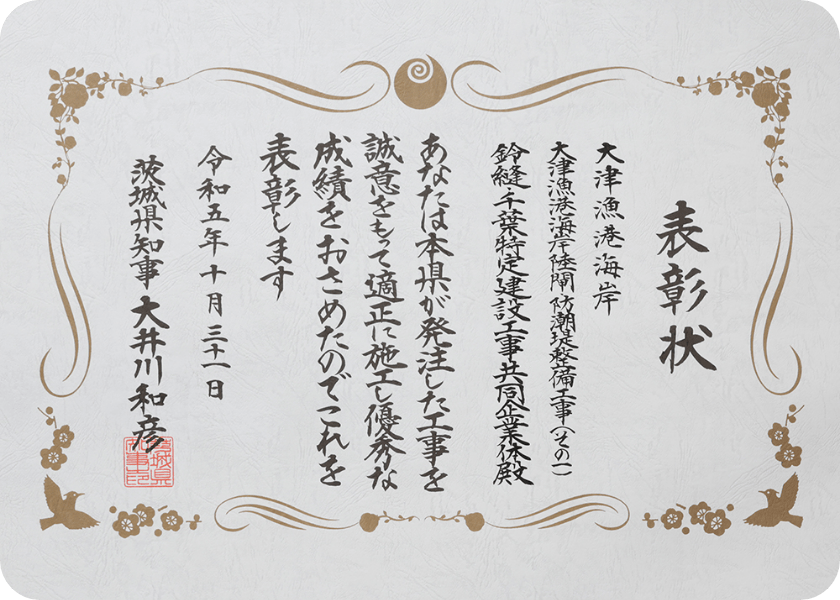 表彰状
大津漁港海岸
大津漁港海岸陸閘防潮堤整備工事(その一)
鈴縫千葉特定建設工事共同企業体殿
あなたは本県が発注した工事を
誠意をもって適正に施工し優秀な
成績をおさめたのでこれを
表彰します
令和五年十月三十一日
茨城県知事 大井川和彦
茨城県知事印